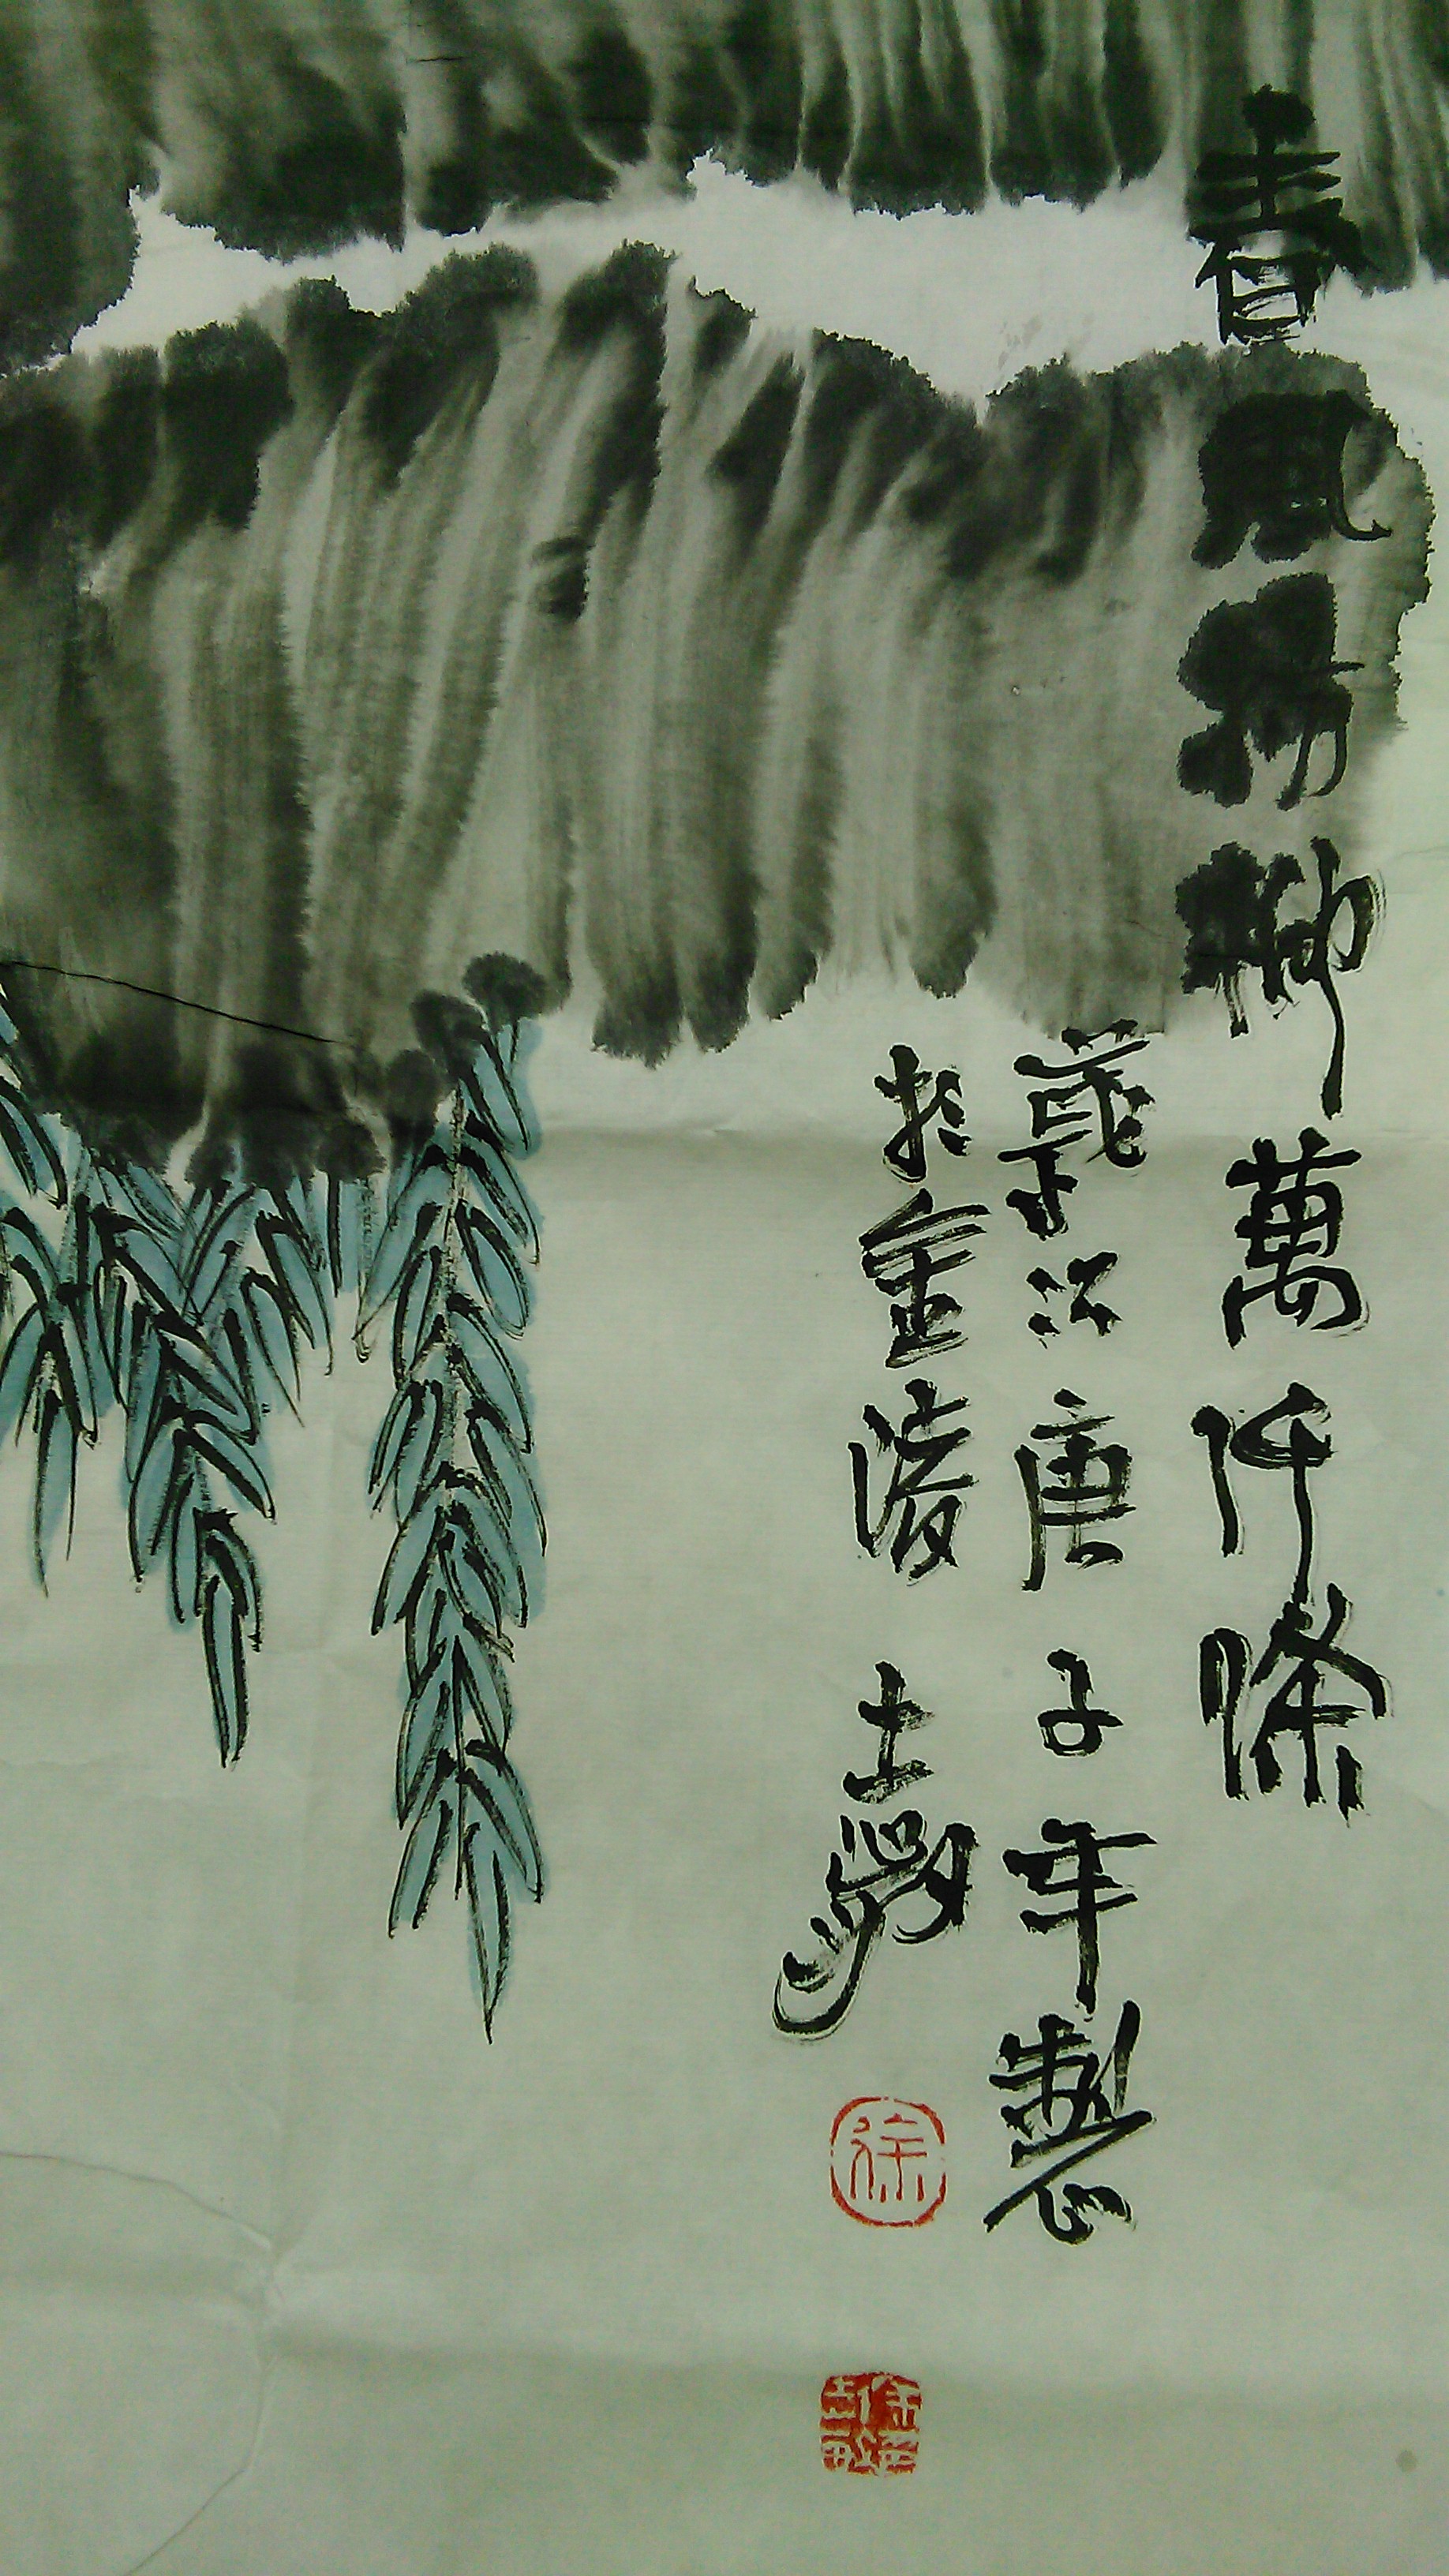 春風楊柳萬仟條
歲次庚子年製
於金陵 士
徐